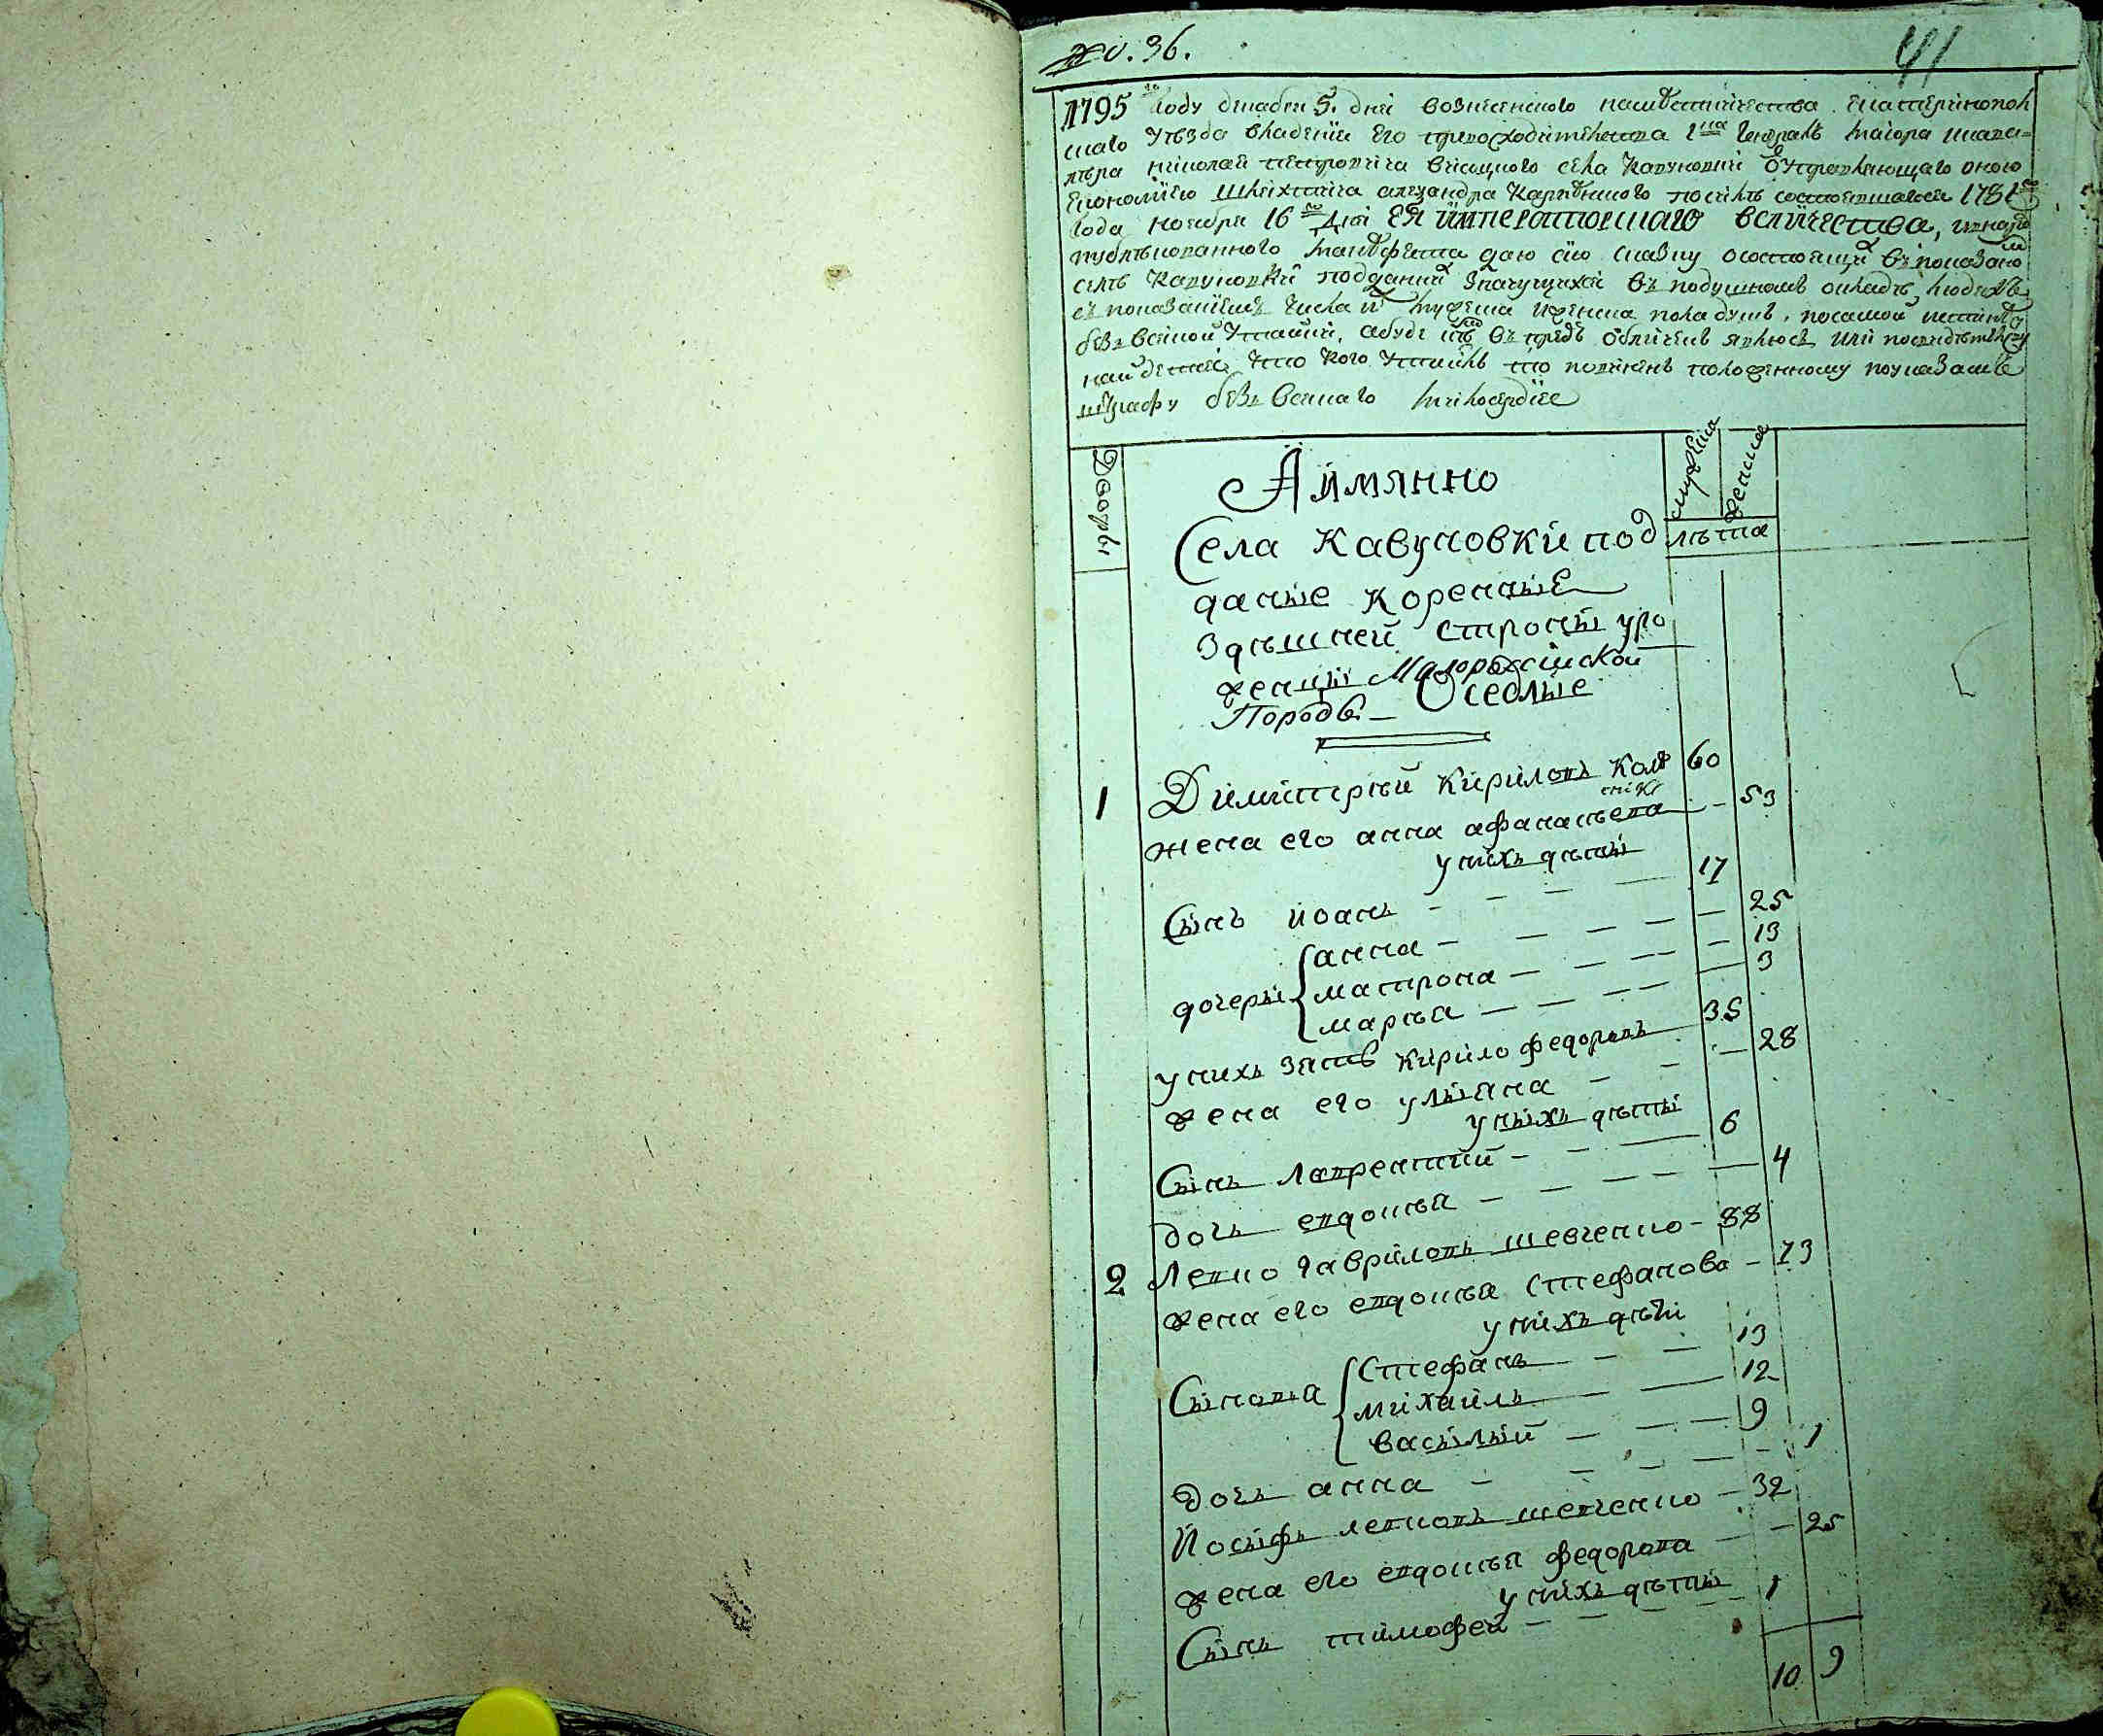 №. 36.
41
1795 году декабря 5. дня вознесенского наместничества екатеринопол
скаго уезда владения его превосходителства гна генералъ маиора кавале
лера николая петровича села Кавуновки управляющаго оною
економиею шляхтича александра после состоявшагося 1781го
года ноября 16го дня ЕЯ императорскаго величества, и
публыкованного манифеста даю сию скаску о состоящихъ въ показано
селе Кавуновки подданихъ значущихся въ подушномъ окладе людехъ
съ показаниемъ числа и мужеска и женска пола душъ, по самой истине
безъ всякой утайки, а буде въ предъ обличенъ явлюсь или
найдетця что кого утаилъ то повиненъ положенному по указамъ
штрафу безъ всякаго милосердия
Дворы
мужеска
женска
лѣта
А имянно
Села Кавуновки под
даные Коренные
здѣшней строны уро
женцы Малороссийской
Породы – Оседлые
1 Димитрый Кирилопъ 60
жена его анна афанасьева – 53
у нихъ дѣти
Сынъ иоанъ – – – – 17
дочеры анна – – – – – 25
матрона – – – – – 13
марья – – – – – 3
у нихъ зять Кирило федоровъ 35
жена его ульяна – – – 28
у ныхъ дѣти
Сынъ Лаврентий – – – 6
дочь евдокья – – – – 4
2 Левко гаврилопъ шевченко – 88
жена его евдокья Стефанова – 73
у нихъ дѣти
Сыновья Стефанъ – – 13
михаилъ – – 12
васылый – – – 9
дочь анна – – – – 1
Иосыфъ левковъ шевченко – 32
жена его евдокья федорова – – 25
у нихъ дѣты
Сынъ тимофей – – – – 1
10 9